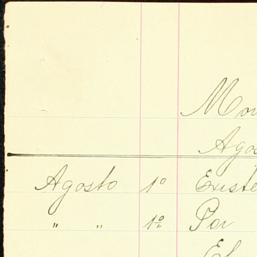 Mov
Agos
Agosto 1º Existe
" " 1º Por
El